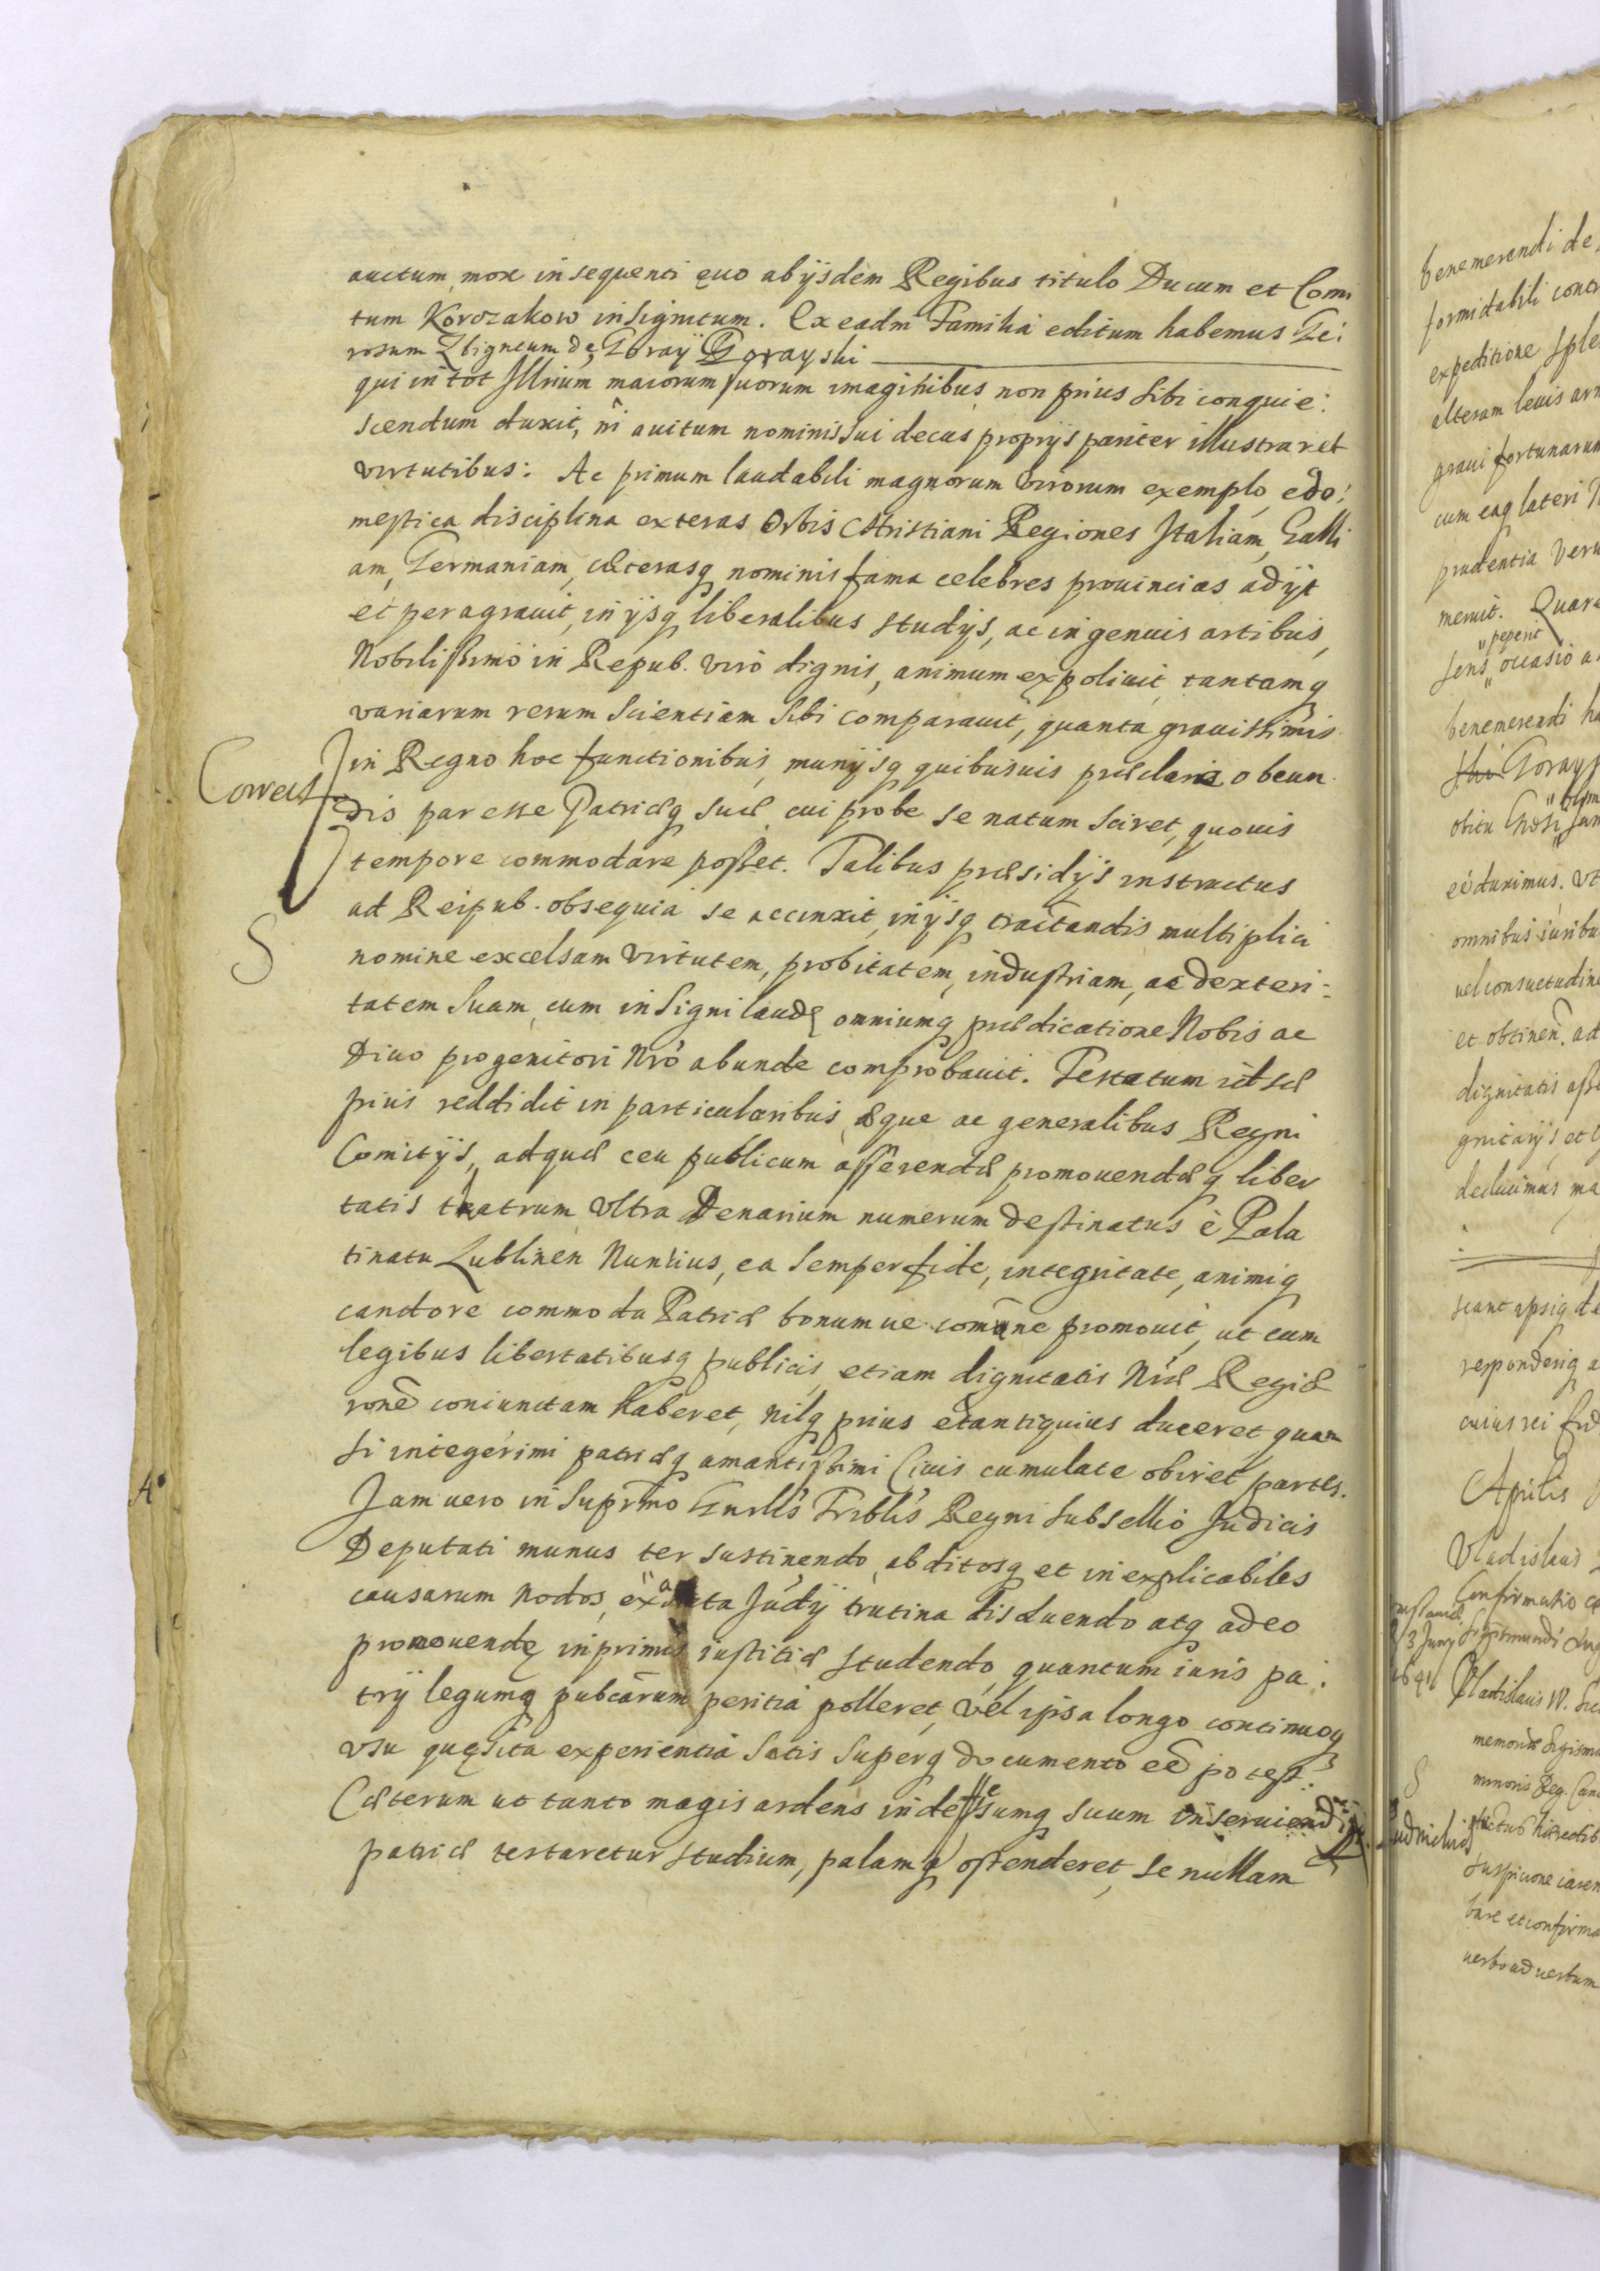 auctum, mox insequenti quo ab ijsdem Regibus titulo Ducum et Comi
tum Korczakow insignitum. Ex eadm Familia editum habemus Ge:
rosum Zbigneum de Goray Gorayski
qui in tot Illrium maiorum suorum imaginibus non prius sibi conquie:
scendum duxit, ni avitum nominis sui decus proprijs pariter illustraret
virtutibus: Ac primum laudabili magnorum virorum exemplo, e do:
mestica disciplina exteras Orbis Christiani Regiones Italiam, Galli
am, Germaniam, cæterasq nominis fama celebres prouincias adijt
et peragrauit, in ijsq liberalibus studijs, ac ingenuis artibus,
Nobilissimo in Repub. viro dignis, animum expoliuit, tantamq
variarum rerum scientiam sibi comparauit, quanta grauissimis
in Regno hoc functionibus, munijsq quibusuis præclaris obeun
Correct
dis par esse Patriæq suæ, cui probe se natum sciret, quouis
tempore commodare posset. Talibus præsidijs instructus
ad Reipub. obsequia se accinxit, in ijsq tractandis multiplici
S
nomine excelsam virtutem, probitatem, industriam, ac dexteri:
tatem suam, cum insigni laude omniumq prædicatione Nobis ac
Diuo progenitori Nro abunde comprobauit. Testatum id sæ
pius reddidit in particularibus æque ac generalibus Regni
Comitijs, ad quæ ceu publicum asserendæ promouendæq liber
tatis theatrum Vltra Denarium numerum destinatus è Pala
tinatu Lublinen Nuntius, ea semper fide, integritate, animiq
candore commoda Patriæ bonumue comune promouit, ut cum
legibus libertatibusq publicis, etiam dignitatis Nræ Regiæ
rone coniunctam haberet, nilq prius et antiquius duceret quam
si integerimi patriæq amantissimi Ciuis cumulate obiret partes.
Jam uero in Suprmo Gnrlis Triblis Regni subsellio Judicis
Deputati munus ter sustinendo, abditosq et inexplicabiles
causarum nodos, exacta Judij trutina disluendo atq adeo
promouendę inprimis iustitiæ studendo, quantum iuris pa:
trij legumq pubcarum peritia polleret, vel ipsa longo continuoq
vsu quęsita experientia satis superq documento ee potest.
Cæterum ut tanto magis ardens indefessumq suum inseruiendi
patriæ testaretur studium, palamq ostenderet, se nullam
benemerendi de
formidabili
expeditione
alteram leuis
graui fortunarum
cum eaq lateri
prudentia
meruit. Quare
peperit
sens occasio
benemerendi
Goray
obitu
duximus.
omnibus iuribu
uel consuetudine
et obtinen. ad
dignitatis
et
declucimus
respondeziq
cuius rei
Aprilis
Vladislaus
Confirmatio
3 Juny
Vladislaus IV.
S
minoris Reg.
suspicione
bare et confirma
uerbo ad uerbum